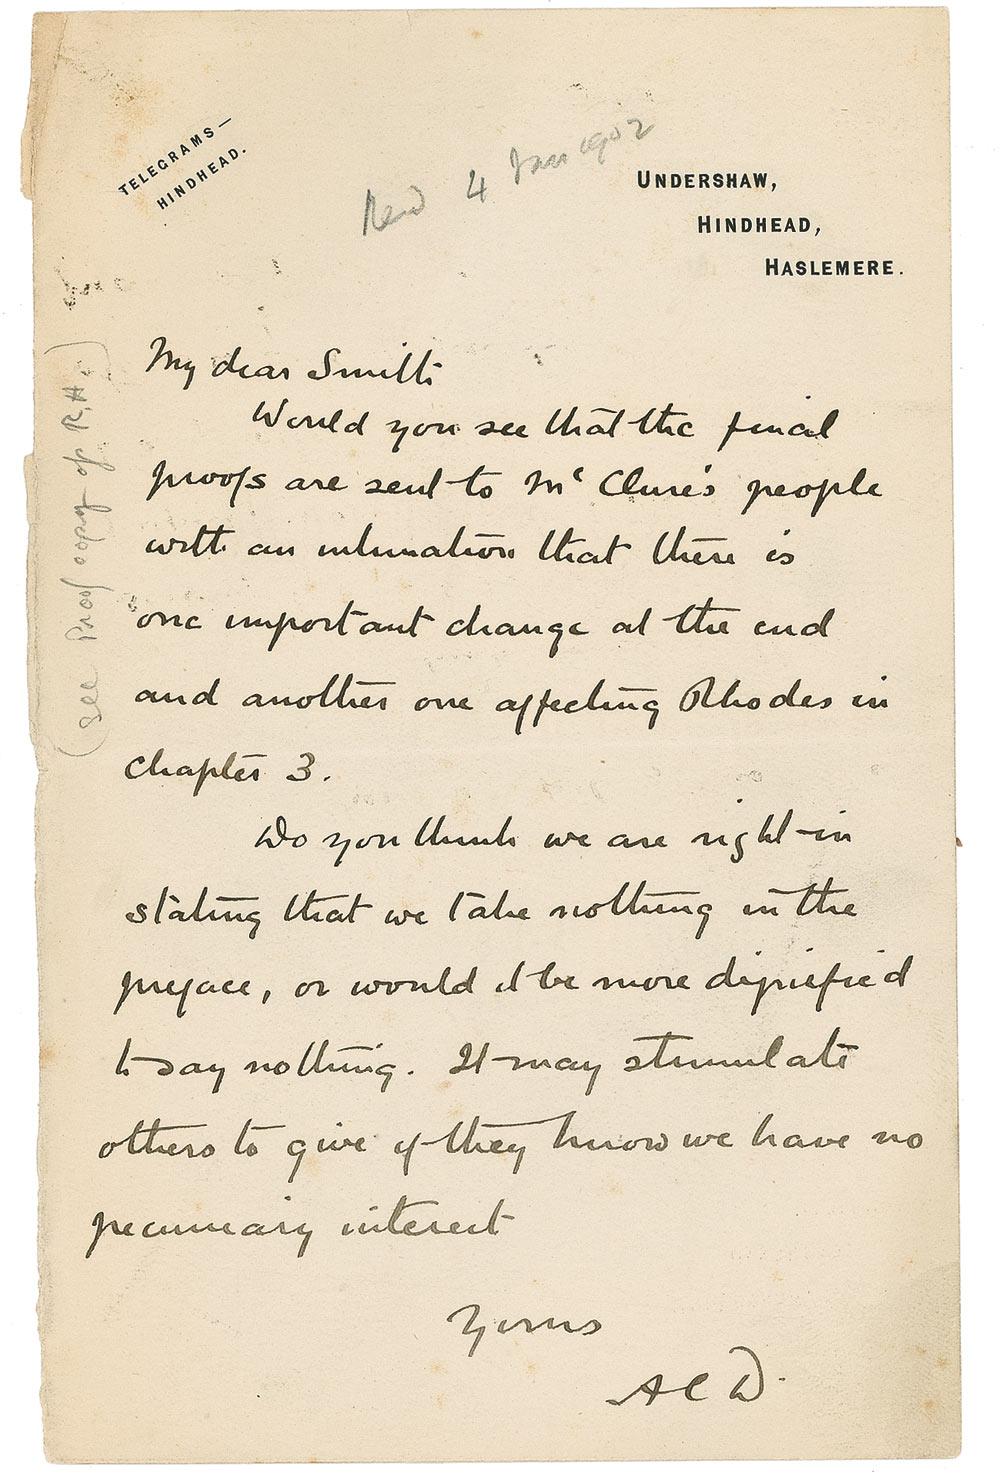 TELEGRAMS—
HINDHEAD.
Recd 4 Jan 1902
UNDERSHAW,
HINDHEAD,
HASLEMERE.
(see Proof copy of R.H.)
My dear Smith
Would you see that the final
proofs are sent to McClure's people
with an intimation that there is
one important change at the end
and another one affecting Rhodes in
chapter 3.
Do you think we are right in
stating that we take nothing in the
preface, or would it be more dignified
to say nothing. It may stimulate
others to give if they know we have no
pecuniary interest
Yours
ACD.